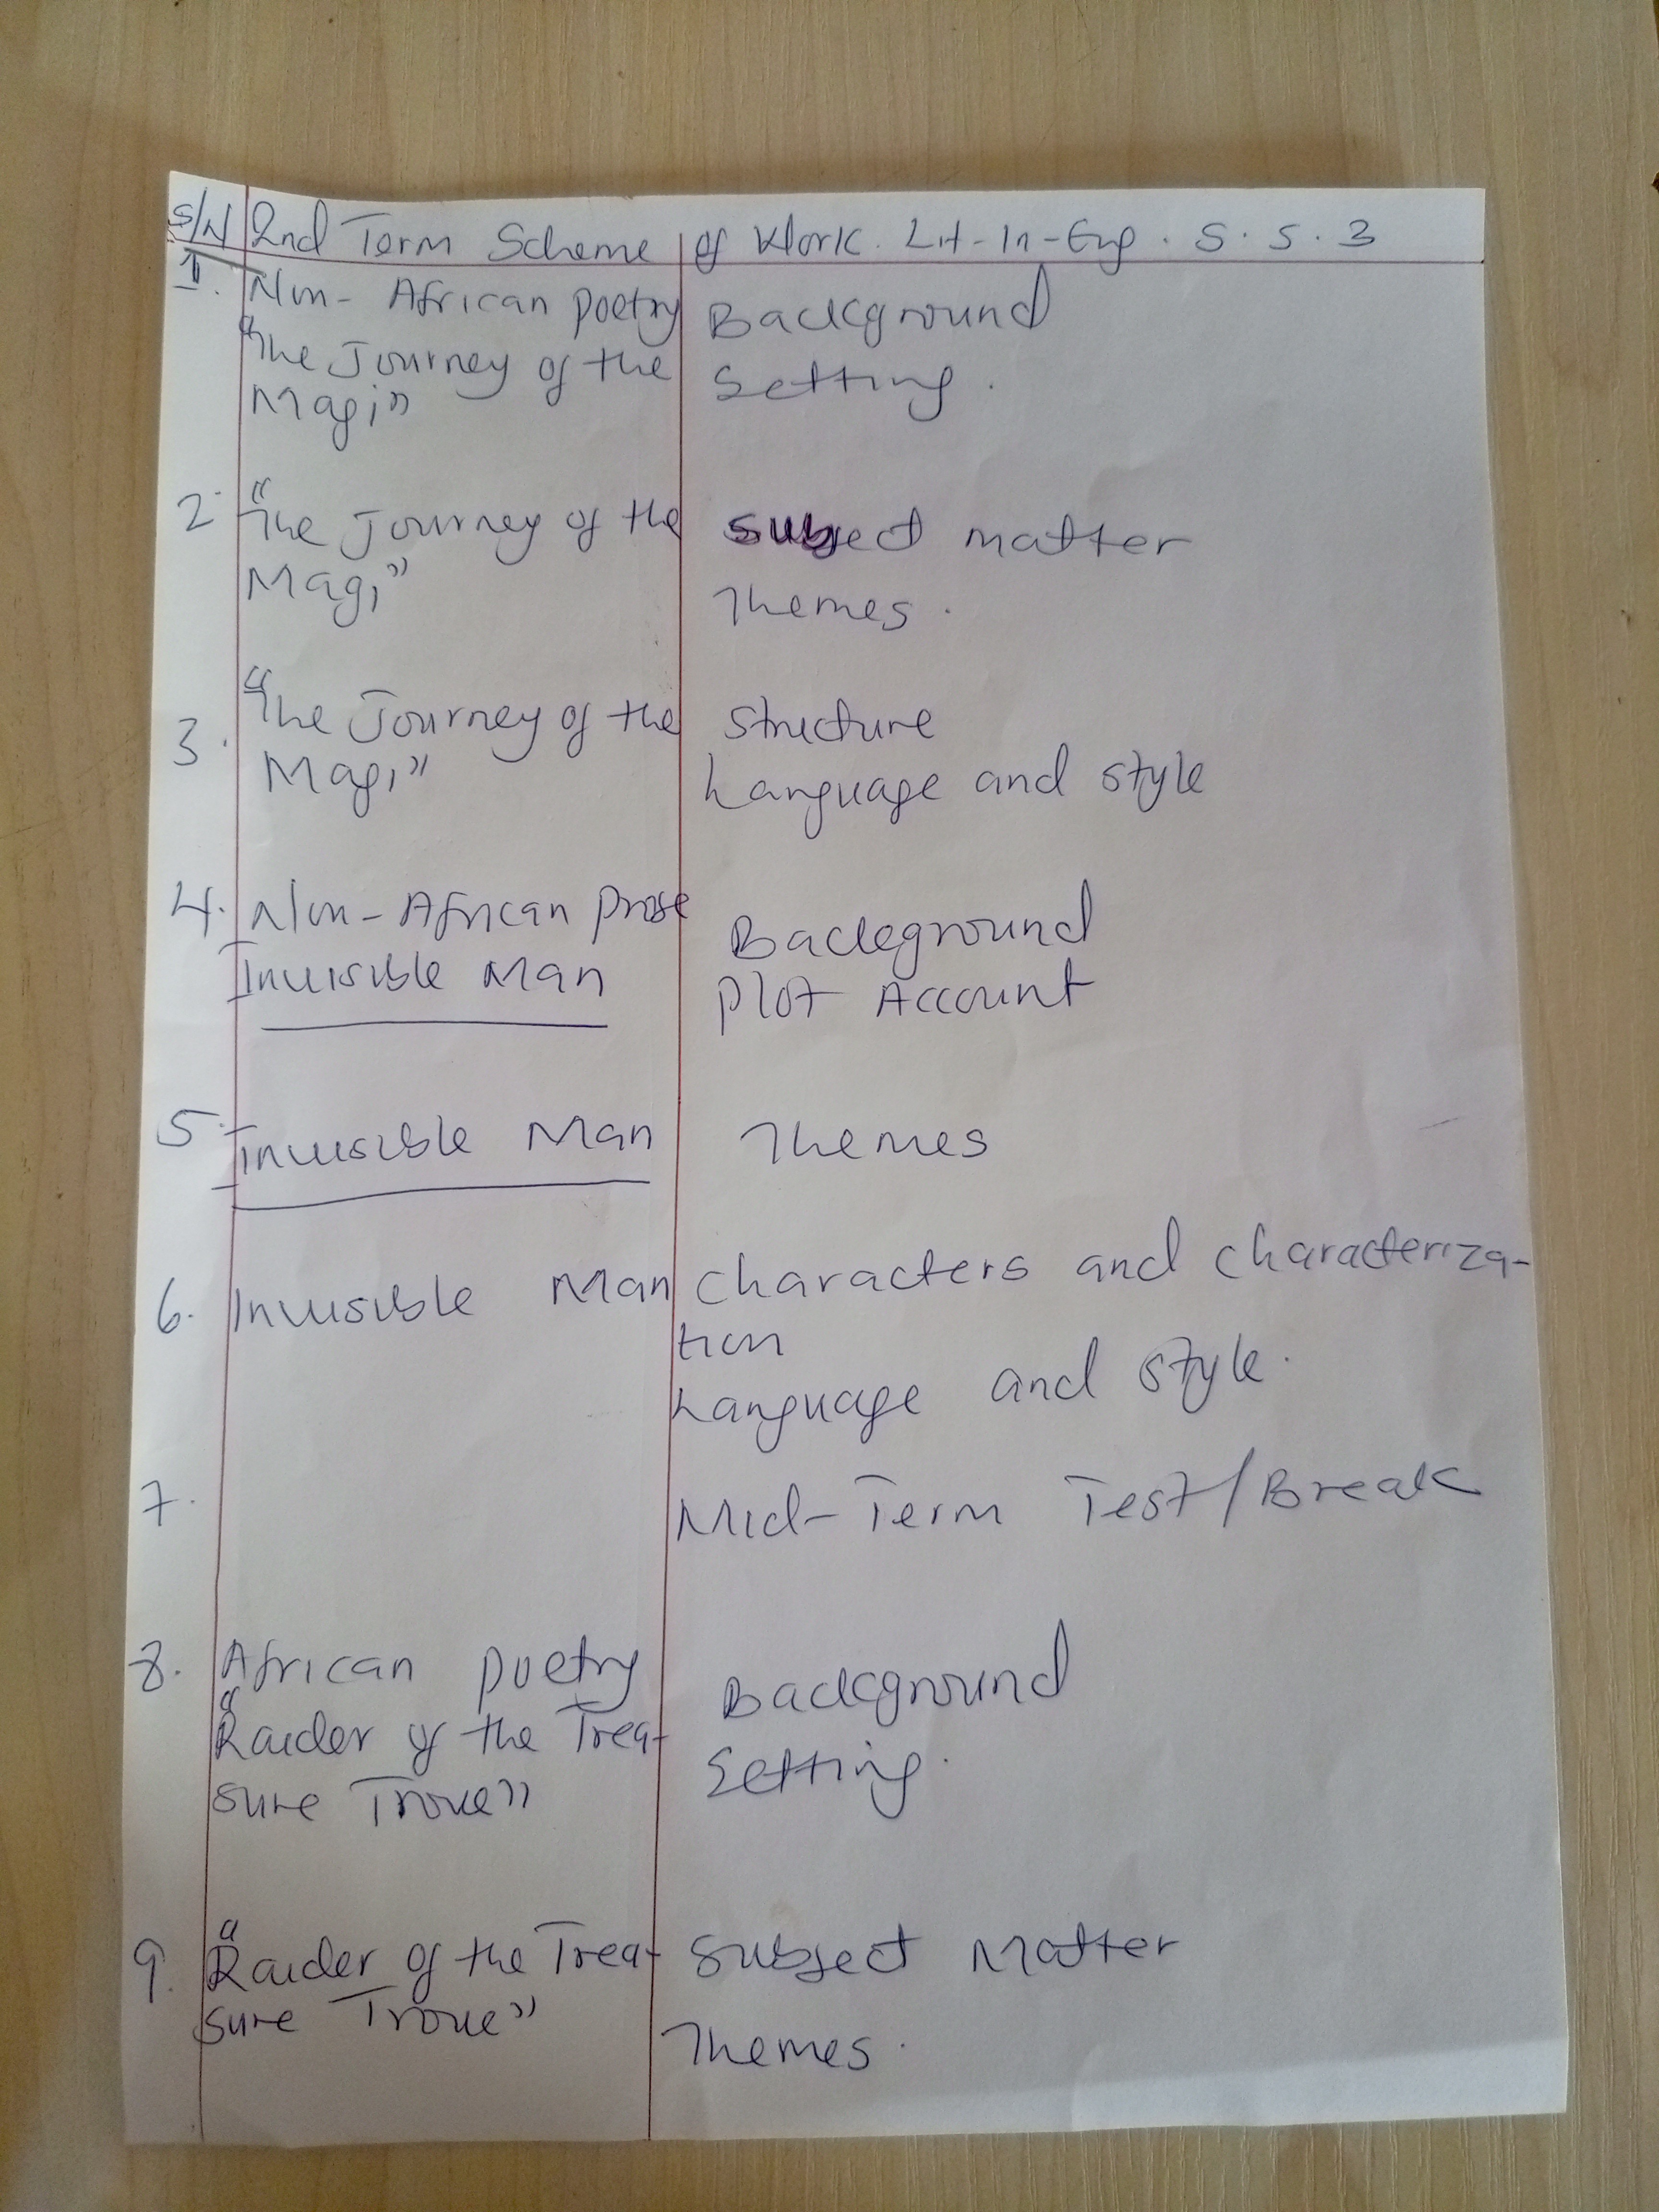 S/N 2nd Term Scheme of Work. Lit-In-Eng. S.S.3
1. Non-African poetry Background
"The Journey of the Setting.
Magi"
2. "The Journey of the subject matter
Magi" Themes.
3. "The Journey of the structure
Magi" Language and style
4. Non-African prose Background
Invisible Man Plot Account
5. Invisible Man Themes
6. Invisible Man Characters and characteriza-
tion
Language and style.
7. Mid-Term Test/Break
8. African poetry Background
"Raider of the Trea- Setting.
sure Trove"
9. "Raider of the Trea- Subject Matter
sure Trove" Themes.